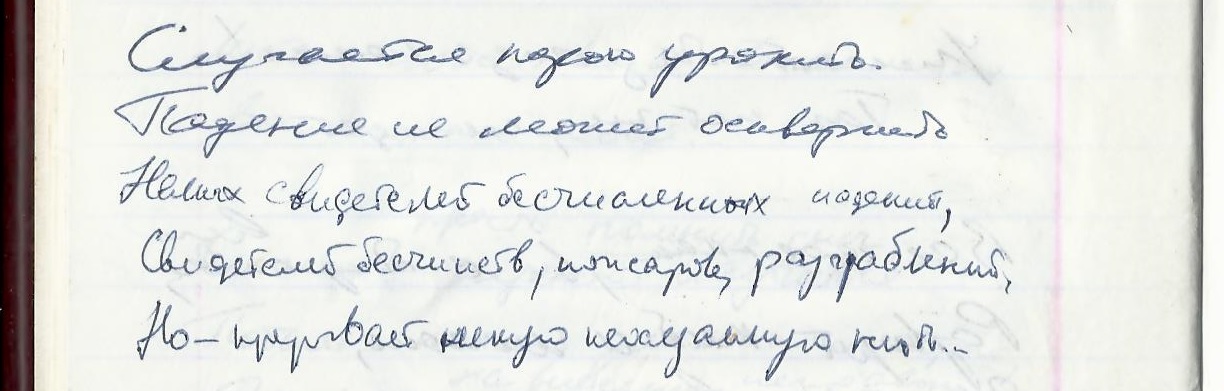 Случается порою уронить.
Падение не может осквернить
Немых свидетелей бесчисленных падений,
Свидетелей бесчинств, пожаров, разграблений,
Но – прерывает некую нить...